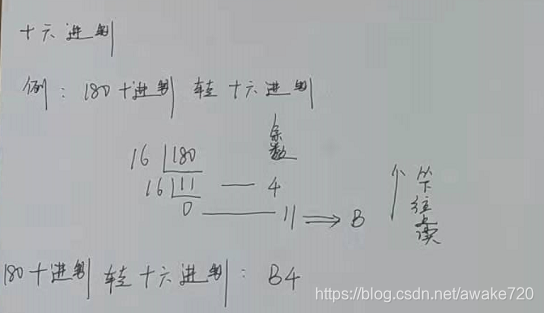 十六进制
例：180十进制 转 十六进制
余数
16 180
16 11 — 4
0 — 11 ⇒ B
↑ 从下往上读
180十进制 转 十六进制：B4
https://blog.csdn.net/awake720